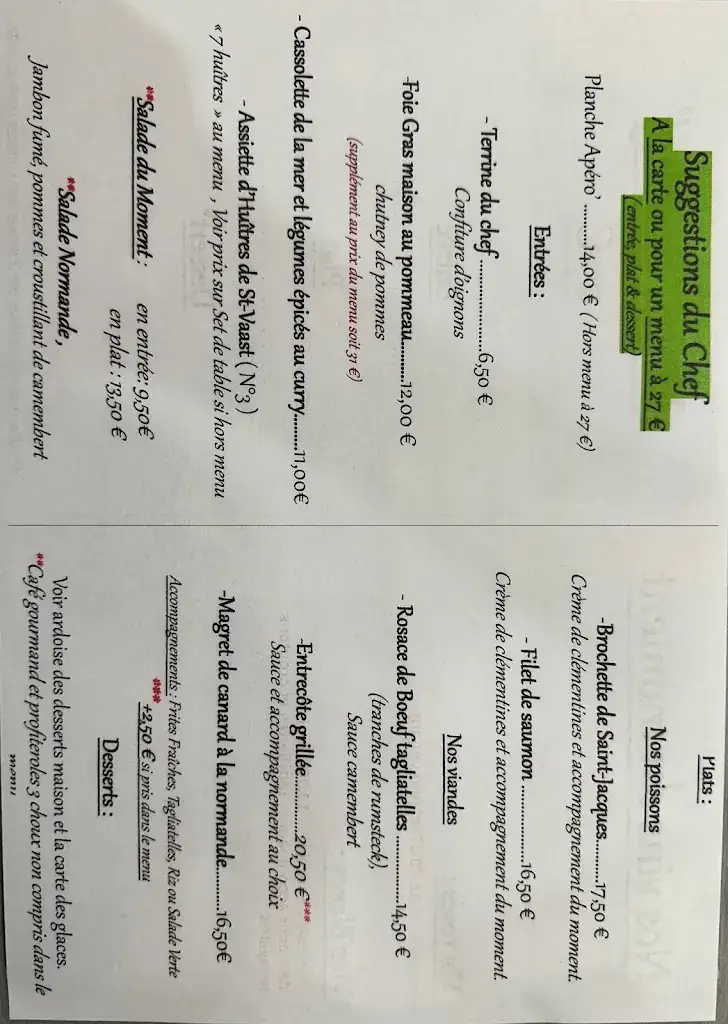 Suggestions du Chef
A la carte ou pour un menu à 27 €
(entrée, plat & dessert)
Planche Apéro' ..........14,00 € ( Hors menu à 27 €)
Entrées :
- Terrine du chef ......................6,50 €
Confiture d'oignons
-Foie Gras maison au pommeau..........12,00 €
chutney de pommes
(supplément au prix du menu soit 31 €)
- Cassolette de la mer et légumes épicés au curry........11,00€
- Assiette d'Huîtres de St-Vaast ( N°3 )
« 7 huîtres » au menu , Voir prix sur Set de table si hors menu
**Salade du Moment : en entrée: 9,50€
en plat : 13,50 €
**Salade Normande,
Jambon fumé, pommes et croustillant de camembert
Plats :
Nos poissons
-Brochette de Saint-Jacques..........17,50 €
Crème de clémentines et accompagnement du moment.
- Filet de saumon ....................16,50 €
Crème de clémentines et accompagnement du moment.
Nos viandes
- Rosace de Boeuf tagliatelles ...............14,50 €
(tranches de rumsteck),
Sauce camembert
-Entrecôte grillée...............20,50 €***
Sauce et accompagnement au choix
-Magret de canard à la normande..........16,50€
Accompagnements : Frites Fraîches, Tagliatelles, Riz ou Salade Verte
*** +2,50 € si pris dans le menu
Desserts :
Voir ardoise des desserts maison et la carte des glaces.
**Café gourmand et profiteroles 3 choux non compris dans le
menu